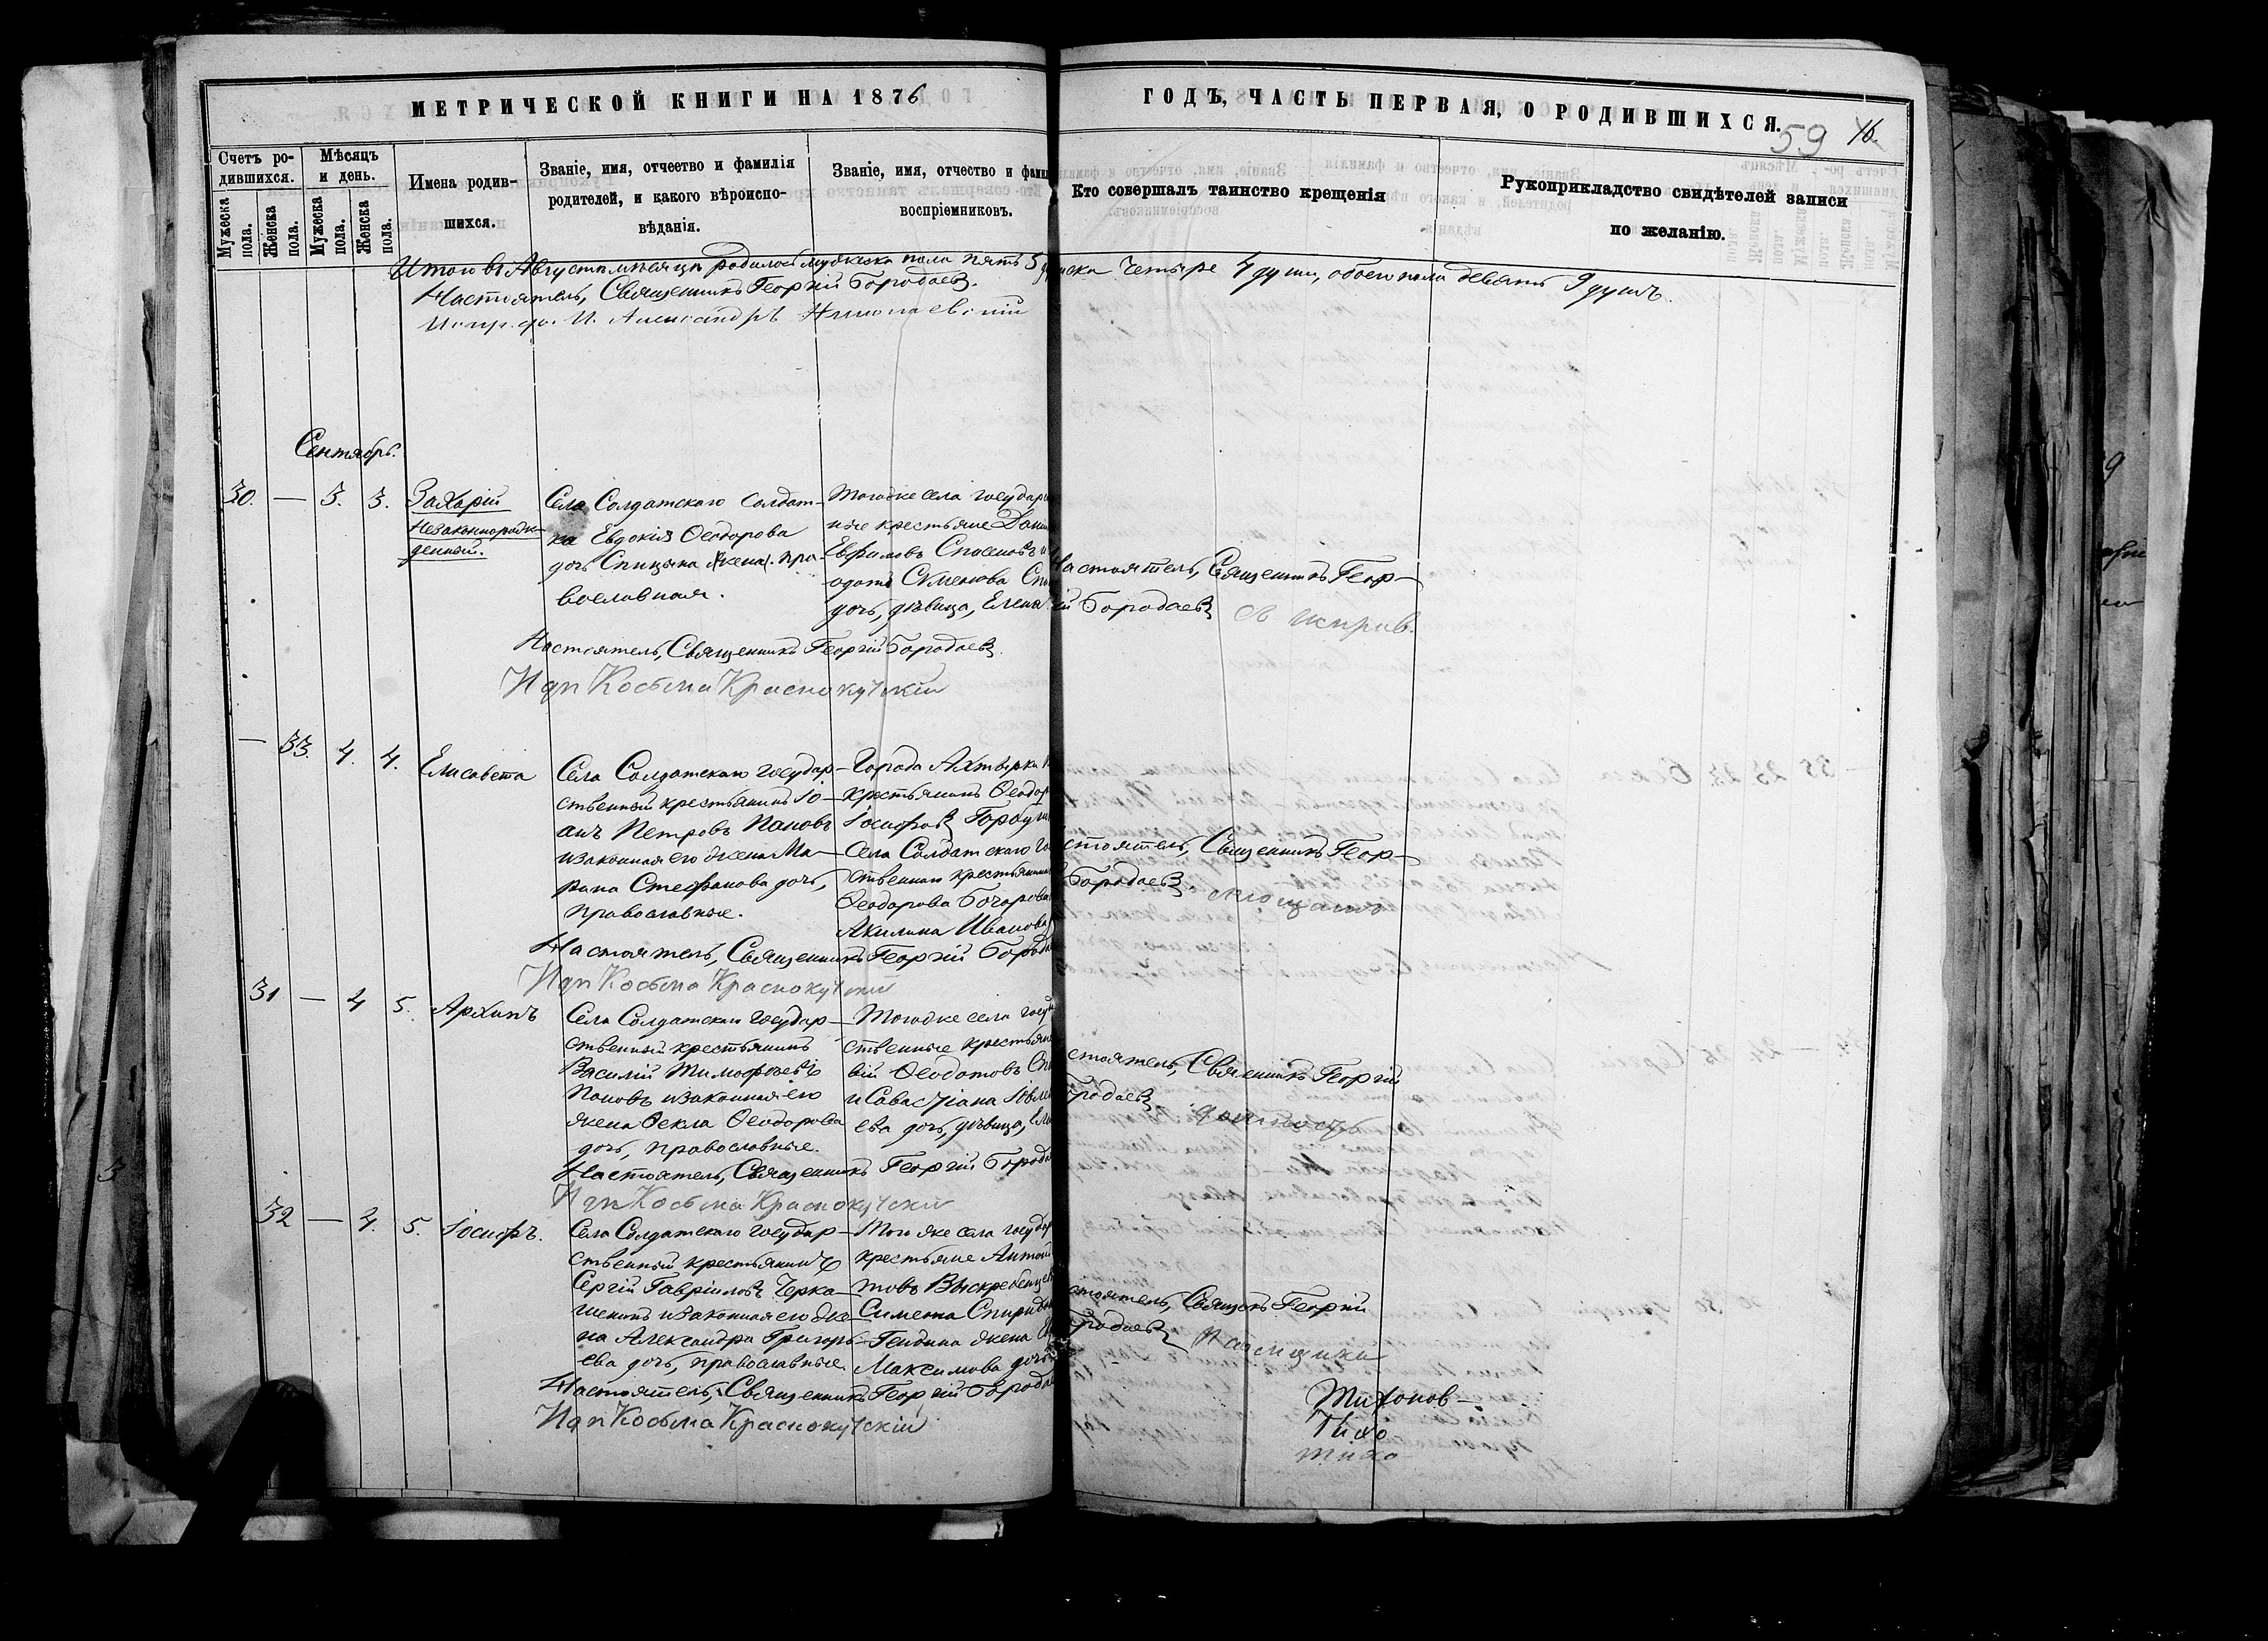 МЕТРИЧЕСКОЙ КНИГИ НА 1876
ГОДЪ, ЧАСТЬ ПЕРВАЯ, О РОДИВШИХСЯ.
59
Счетъ ро-
дившихся.
Мужеска
пола.
Женска
пола.
Мѣсяцъ
и день.
Мужеска
пола.
Женска
пола.
Имена родив-
шихся.
Званіе, имя, отчество и фамилія
родителей, и какого вѣроиспо-
вѣданія.
Званіе, имя, отчество и фами
воспріемниковъ.
Кто совершалъ таинство крещенія
Рукоприкладство свидѣтелей записи
по желанію.
Итого въ Августѣ мѣсяцѣ родилось мужеска пола пять 5
женска четыре 4 души, обоего пола девять 9 душъ.
Настоятель, Священникъ Георгій Бородаевъ.
Александръ Николаевскій
Сентябрь.
30. — 3. 3. Захарій
Незаконнорож-
денный.
Села Солдатскаго солдат-
ка Евдокія Ѳеодорова
дочь Спицына (жена). пра-
вославная.
Тогоже села государ
ные крестьяне
Евфимовъ
дочь, дѣвица, Елена
Настоятель, Священникъ Геор-
гій Бородаевъ
Настоятель, Священникъ Георгій Бородаевъ.
Идп Косьма Краснокутскій
— 33. 4. 4. Елисавета
Села Солдатскаго государ-
ственный крестьянинъ Іо-
анъ Петровъ Поповъ
и законная его жена Ма-
рина Стефанова дочь,
православные.
Города Ахтырки
крестьянинъ Ѳеодор
Іосифовъ
Села Солдатскаго го
ственнаго крестьянина
Ѳеодорова Бочарова
Акилина Иванова
стоятель, Священникъ Геор-
Бородаевъ.
Настоятель, Священникъ Георгій Борода
Идп Косьма Краснокутскій
31 — 4 5. Архипъ
Села Солдатскаго государ-
ственный крестьянинъ
Василій Тимофѣевъ
Поповъ и законная его
жена Ѳекла Ѳеодорова
дочь, православные.
Тогоже села госуд
ственные крестьян
вій Ѳеодотовъ
и Севастіана
ева дочь, дѣвица,
стоятель, Священникъ Георгій
Бородаевъ
Настоятель, Священникъ Георгій Борода
Идп Косьма Краснокутскій
32 — 4. 5. Іосифъ.
Села Солдатскаго государ-
ственный крестьянинъ
Сергій Гавріиловъ Черка-
шенинъ и законная его же-
на Александра Григорь-
ева дочь, православные.
Того же села государ
крестьяне Антоній
товъ Выскребенцевъ
Симеона Спиридо
жена
Максимова дочь
стоятель, Священъ Георгій
Бородаевъ
Настоятель, Священникъ Георгій Борода
Идп Косьма Краснокутскій
Тихонов-
Тихо
тихо